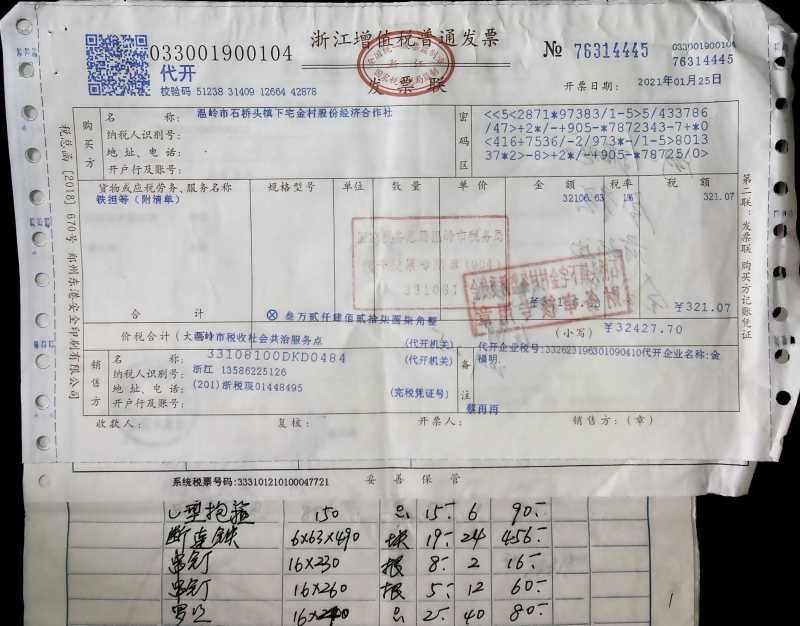 033001900104
浙江增值税普通发票
№ 76314445
033001900104
76314445
代开
发票联
校验码 51238 31409 12664 42878
开票日期: 2021年01月25日
购买方
名 称: 温岭市石桥头镇下宅金村股份经济合作社
纳税人识别号:
地 址、电 话:
开户行及账号:
密码区
<<5<2871*97383/1-5>5/433786
/47>+2*/-+905-*7872343-7+*0
<416+7536/-2/973*-/1-5>8013
37*2>-8>+2*/-+905-*78725/0>
货物或应税劳务、服务名称 规格型号 单位 数 量 单 价 金 额 税率 税 额
铁担等(附清单) 32106.63 1% 321.07
合 计 ¥321.07
价税合计(大写) ⊗ 叁万贰仟肆佰贰拾柒圆柒角整 (小写) ¥32427.70
销售方
名 称: 温岭市税收社会共治服务点 (代开机关)
纳税人识别号: 33108100DKD0484 (代开机关)
地 址、电 话: 浙江 13586225126
开户行及账号: (201)浙税现01448495 (完税凭证号)
备注
代开企业税号:332623196301090410代开企业名称:金
横明.
蔡冉冉
收款人: 复核: 开票人: 销售方:(章)
税总函〔2018〕670号 郑州东港安全印刷有限公司
第二联:发票联 购买方记账凭证
系统税票号码:333101210100047721 妥善保管
U型抱箍 150 15.- 6 90.-
6×63×490 块 19.- 24 456.-
串钉 16×230 根 8.- 2 16.-
串钉 16×260 根 5.- 12 60.-
2.- 40 80.-
1